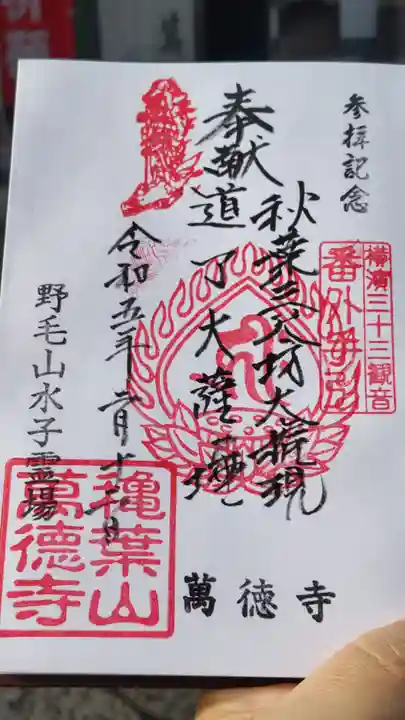 参拝記念
横濱三十三観音
番外
奉献
秋葉三尺坊大権現
道了大薩埵
令和五年二月十二日
野毛山水子霊場
萬德寺
葉山
萬徳寺